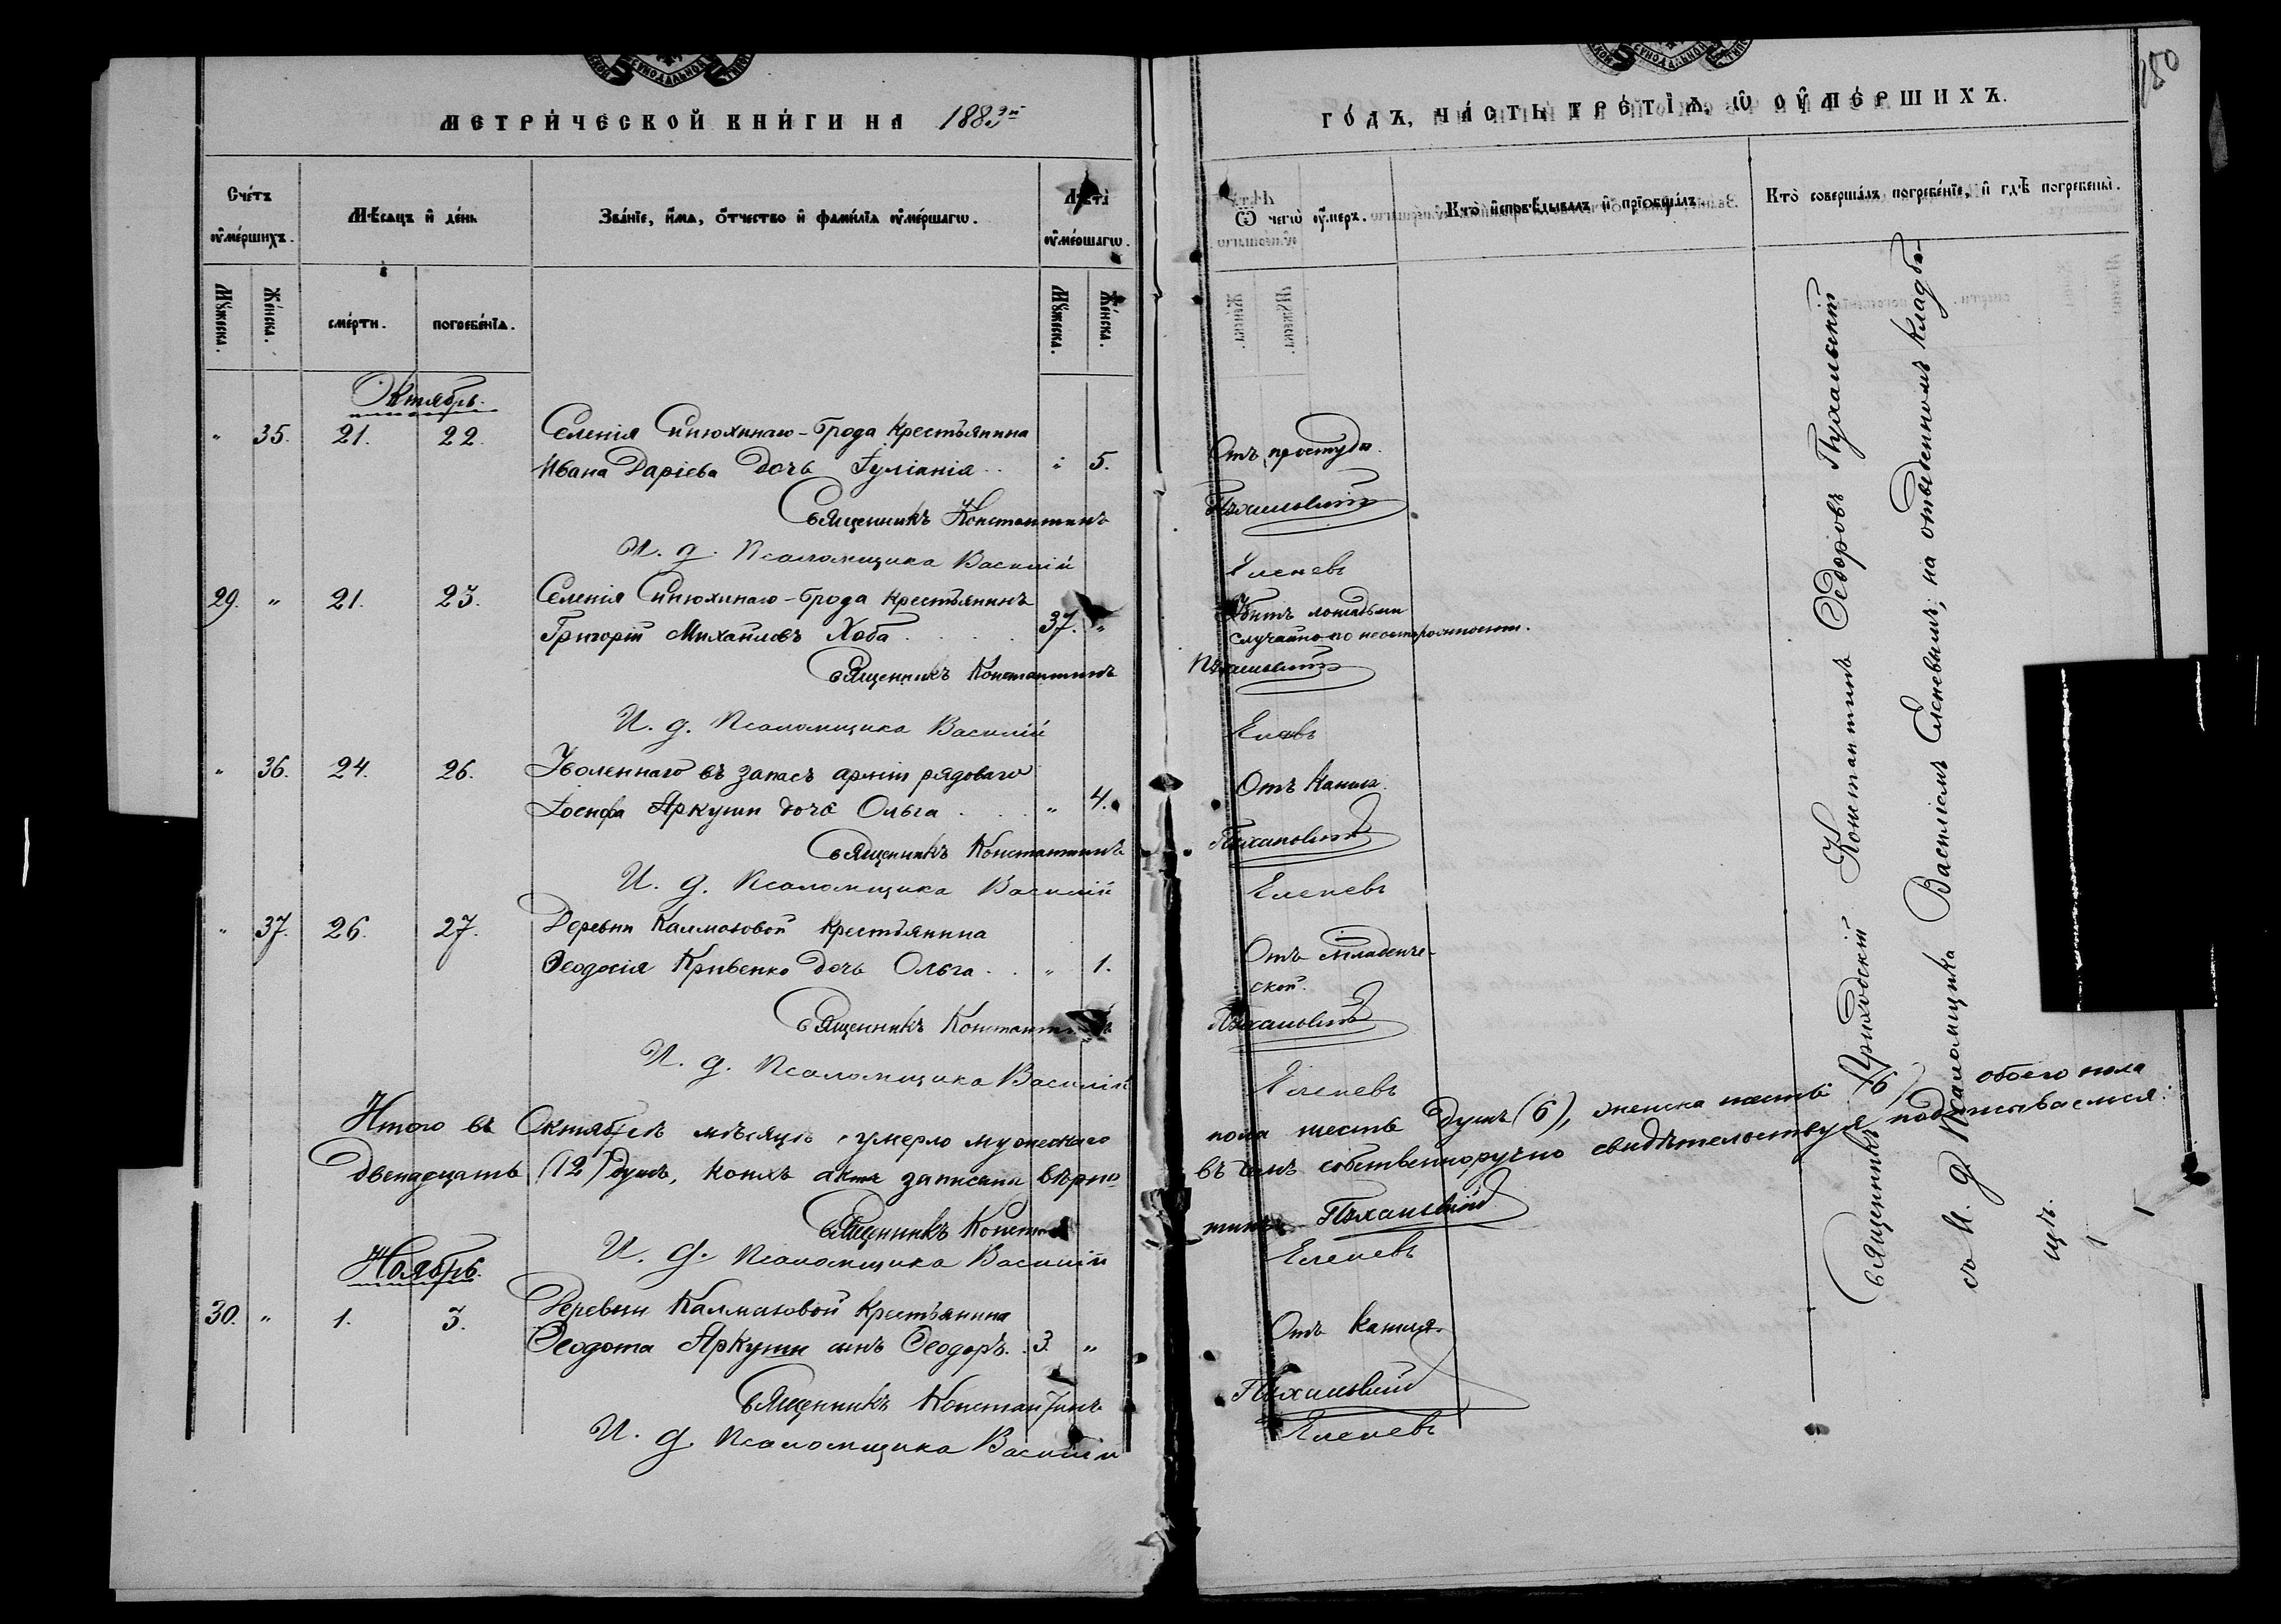 МЕТРИЧЕСКОЙ КНИГИ НА 1883й
ГОДЪ, ЧАСТЬ ТРЕТІЯ, Ѡ ОУМЕРШИХЪ.
180
Счетъ оумершихъ.
Мѣсяцъ и день
Званіе, имя, отчество и фамилія оумершагѡ.
Лѣта оумершагѡ.
Ѿ чегѡ оумеръ.
Кто исповѣдывалъ и приобщалъ
Кто совершалъ погребеніе, и гдѣ погребены.
Мужеска.
Женска.
смерти.
погребенія.
Мужеска.
Женска.
Октябрь.
" 35. 21. 22. Селенія Синюхинаго-Брода крестьянина
Ивана Даріева дочь Іуліанія .. " 5. Отъ простуды.
Священникъ Константинъ Пухальскій
И. д. Псаломщика Василій Еленевъ
29. " 21. 23. Селенія Синюхинаго-Брода крестьянинъ
Григорій Михайловъ Хоба .... 37. " Убитъ лошадьми
случайно по неосторожности.
Священникъ Константинъ Пухальскій
И. д. Псаломщика Василій
" 36. 24. 26. Уволеннаго въ запасъ арміи рядоваго
Іосифа Яркуши дочь Ольга ... " 4. Отъ кашля.
Священникъ Константинъ Пухальскій
И. д. Псаломщика Василій Еленевъ
" 37. 26. 27. Деревни Калмазовой крестьянина
Ѳеодосія Кривенко дочь Ольга .. " 1. Отъ младенче-
ской.
Священникъ Константинъ Пухальскій
И. д. Псаломщика Василій Еленевъ
Итого въ Октябрѣ мѣсяцѣ умерло мужескаго пола шесть душъ (6), женска шесть (6) обоего пола
двенадцать (12) душъ, коихъ акты записаны вѣрно въ чемъ собственноручно свидѣтельствуя подписываемся:
Священникъ Константинъ Пухальскій
И. д. Псаломщика Василій Еленевъ
Ноябрь.
30. " 1. 3. Деревни Калмазовой крестьянина
Ѳеодота Яркуши сынъ Ѳеодоръ .. 3. " Отъ кашля.
Священникъ Константинъ Пухальскій
И. д. Псаломщика Василій Еленевъ
Священникъ Приходскій Константинъ Ѳедоровъ Пухальскій
съ И. д. Псаломщика Василіемъ Еленевымъ, на отведенномъ кладби-
щѣ.